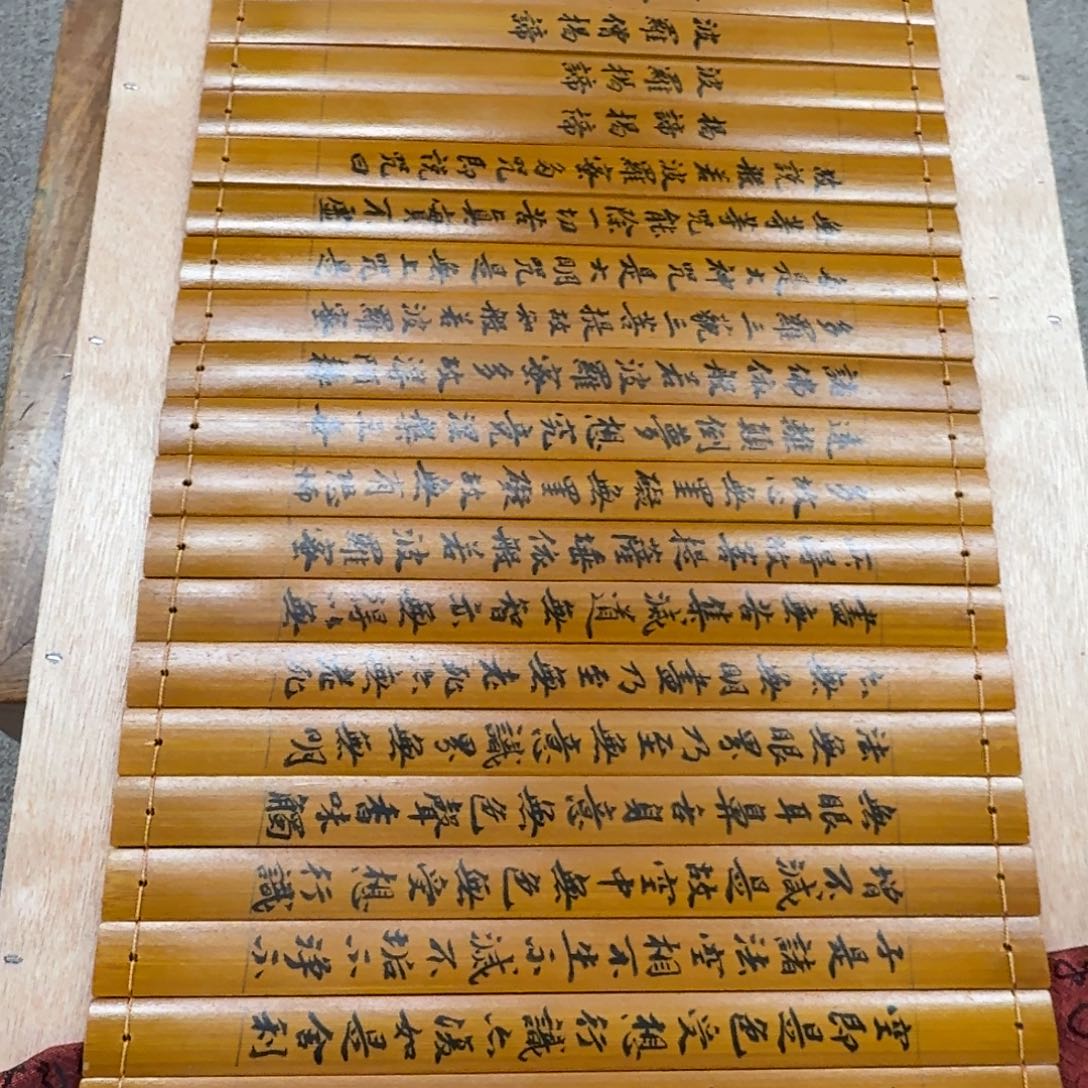 空即是色受想行識亦復如是舍利
子是諸法空相不生不滅不垢不淨不
增不減是故空中無色受想行識
無眼耳鼻舌身意無色聲香味觸
法無眼界乃至無意識界無無明
亦無無明盡乃至無老死亦無老死
盡無苦集滅道無智亦無得以無
所得故菩提薩埵依般若波羅蜜
多故心無罣礙無罣礙故無有恐怖
遠離顛倒夢想究竟涅槃三世
諸佛依般若波羅蜜多故得阿耨
多羅三藐三菩提故知般若波羅蜜
多是大神咒是大明咒是無上咒是
無等等咒能除一切苦真實不虛
故說般若波羅蜜多咒即說咒曰
揭諦揭諦
波羅揭諦
波羅僧揭諦